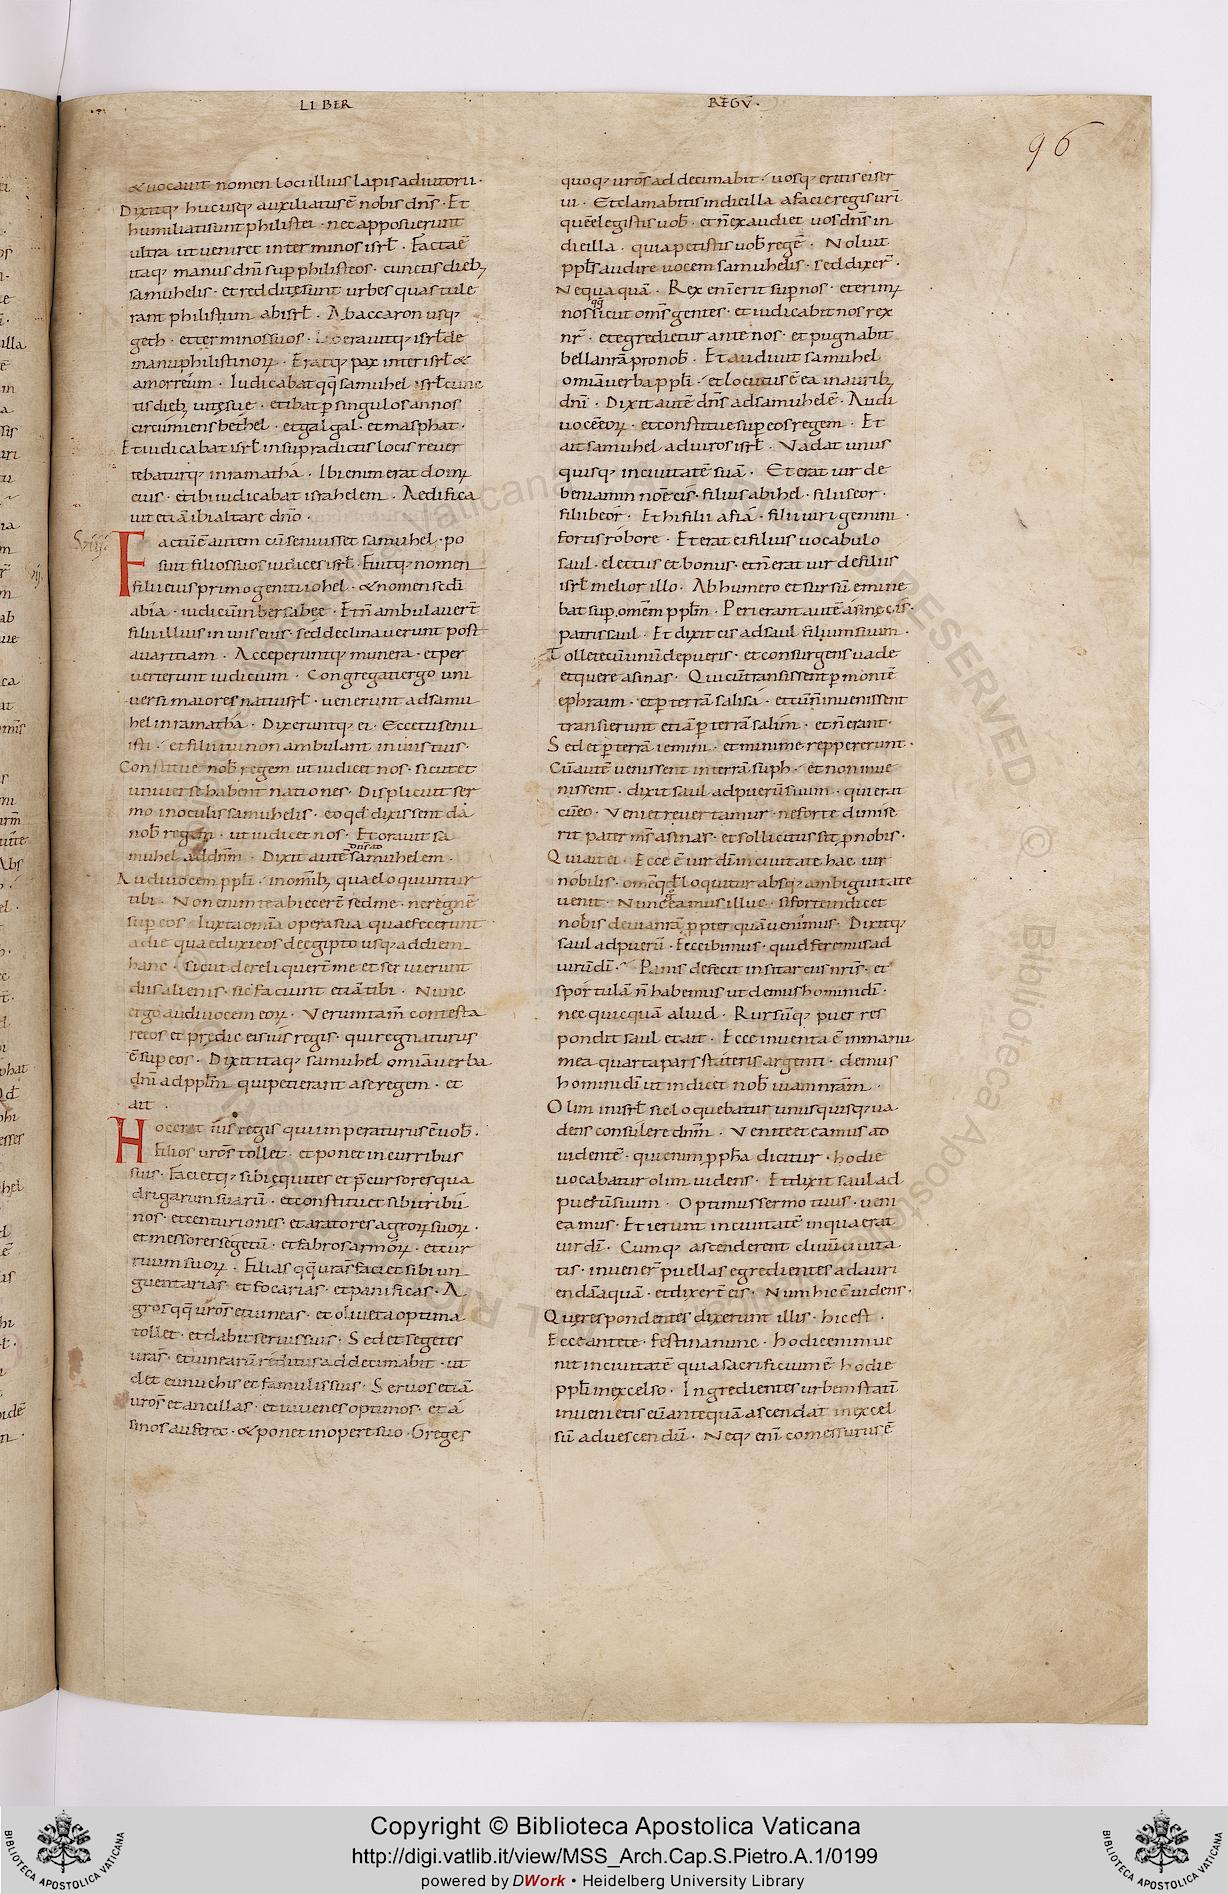 LIBER REGŪ·
96
& vocavit nomen loci illius lapis adiutorii·
Dixitq; hucusq; auxiliatus ē nobis dn̄s· Et
humiliati sunt philistei· nec apposuerunt
ultra ut venirct inter minos isrł· Facta ē
itaq; manus dn̄i sup philisteos· cunctis dieb;
samuhelis· et reddite sunt urbes quas tule
rant philistiim ab isrł· Abaccaron usq;
geth· et terminos suos· Liberavitq; isrł de
manu philistinoꝝ· Eratq; pax inter isrł &
amorreum· Iudicabat qq̄ samuhel isrł cunc
tis dieb; vite sue· et ibat ꝑ singulos annos
circumiens bethel· et galgal· et masphat·
Et iudicabat isrł in supradictis locis rever
tebaturq; in ramathā· Ibi enim erat dom;
eius· et ibi iudicabat israhelem· Aedifica
vit etiā ibi altare dn̄o·
Factū ē autem cū senuisset samuhel· po
suit filios suos iudices isrł· Fuitq; nomen
filii eius primogeniti iohel· & nomen sc̄di
abia· iudicū in bersabee· Et n̄ ambulaver̄t
filii illius in viis eius· sed declinaverunt post
avaritiam· Acceperuntq; munera· et per
verterunt iudicium· Congregati ergo uni
versi maiores natu isrł· venerunt ad samu
hel in ramathā· Dixeruntq; ei· Ecce tu senu
isti· et filii tui non ambulant in viis tuis·
Constitue nob̄ regem ut iudicet nos· sicut et
universe habent nationes· Displicuit ser
mo in oculis samuhelis· eo qd̄ dixissent da
nob̄ regem· ut iudicet nos· Et oravit sa
muhel ad dn̄m· Dixit autē dn̄s ad samuhelem·
Audi vocem ppłi· in omib; quae loquuntur
tibi· Non enim te abiecer̄t sed me· ne regnē
sup eos· Iuxta omīa opera sua quae fecerunt
a die qua eduxi eos de egipto usq; ad diem
hanc· sicut dereliquer̄t me et servierunt
diis alienis· sic faciunt etiā tibi· Nunc
ergo audi vocem eoꝝ· Veruntam̄ contesta
re eos et predic eis ius regis· qui regnaturus
ē sup eos· Dixit itaq; samuhel omīa verba
dn̄i ad ppłm̄ qui petierant a se regem· et
ait·
Hoc erit ius regis qui imperaturus ē vob̄·
Filios vr̄os tollet· et ponet in curribus
suis· Facietq; sibi equites et p̄cursores qua
drigarum suarū· et constituet sibi tribu
nos· et centuriones· et aratores agroꝝ suoꝝ·
et messores segetū· et fabros armoꝝ· et cur
ruum suoꝝ· Filias qq̄ vr̄as faciet sibi un
guentarias· et focarias· et panificas· A
gros qq̄ vr̄os et vineas· et oliveta optima
tollet· et dabit servis suis· Sed et segetes
vr̄as· et vinearū reditus addecimabit· ut
det eunuchis et famulis suis· Servos etiā
vr̄os et ancillas· et iuvenes optimos· et a
sinos auferec· & ponet in opere suo· Greges
quoq; vr̄os addecimabit· vosq; eritis ei ser
vi· Et clamabitis in die illa a facie regis vr̄i
quē elegistis vob̄· et n̄ exaudiet vos dn̄s in
die illa· quia petistis vob̄ regē· Noluit
ppłs audire vocem samuhelis· sed dixer̄·
Nequaquā· Rex enī erit sup nos· et erim;
nos qq̄ sicut om̄s gentes· et iudicabit nos rex
nr̄· et egredietur ante nos· et pugnabit
bella nr̄a pro nob̄· Et audivit samuhel
omīa verba ppłi· et locutus ē ea in aurib;
dn̄i· Dixit autē dn̄s ad samuhelē· Audi
vocē eoꝝ· et constitue super eos regem· Et
ait samuhel ad viros isrł· Vadat unus
quisq; in civitatē suā· Et erat vir de
beniamin noē cis· filius abihel· filii seor·
filii beor· Et hi filii afia· filii viri gemini·
fortis robore· Et erat ei filius vocabulo
saul· electus et bonus· et n̄ erat vir de filiis
isrł melior illo· Ab humero et sursū emine
bat sup omēm ppłm̄· Perierant autē asine cis·
patris saul· Et dixit cis ad saul filium suum·
Tolle tecū unū de pueris· et consurgens vade
et quere asinas· Qui cū transissent ꝑ montē
ephraim· et ꝑ terrā salisa· et cū n̄ invenissent
transierunt etiā ꝑ terrā salim· et n̄ erant·
Sed et ꝑ terrā iemini· et minime reppererunt·
Cū autē venissent in terrā suph· et non inve
nissent· dixit saul ad puerū suum· qui erat
cū eo· Veni et revertamur· ne forte dimise
rit pater ms̄ asinas· et sollicitus sit ꝓ nobis·
Qui ait ei· Ecce ē vir dī in civitate hac vir
nobilis· omē qd̄ loquitur absq; ambiguitate
venit· Nunc g̊ eamus illuc· si forte indicet
nobis de via nr̄a ꝓpter quā venimus· Dixitq;
saul ad puerū· Ecce ibimus· quid feremus ad
virū dī· Panis defecit in sitarcus nr̄is· et
sportulā n̄ habemus ut demus homini dī·
nec quicquā aliud· Rursūq; puer res
pondit saul et ait· Ecce inventa ē in manu
mea quarta pars stateris argenti· demus
homini dī ut indicet nob̄ viam nr̄am·
Olim in isrł sic loquebatur unusquisq; va
dens consulere dn̄m· Venite et eamus ad
videntē· qui enim ꝓpha dicitur· hodie
vocabatur olim videns· Et dixit saul ad
puerū suum· Optimus sermo tuus· veni
eamus· Et ierunt in civitatē in qua erat
vir dī· Cumq; ascenderent clivū civita
tis· invener̄ puellas egredientes ad auri
endā aquā· et dixer̄t eis· Num hic ē videns·
Que respondentes dixerunt illis· hic est·
Ecce ante te· festina nunc· hodie enim ve
nit in civitatē quia sacrificium ē hodie
ppłi in excelso· Ingredientes urbem statī
invenietis eū antequā ascendat in excel
sū ad vescendū· Neq; enī comessurus ē
Copyright © Biblioteca Apostolica Vaticana
http://digi.vatlib.it/view/MSS_Arch.Cap.S.Pietro.A.1/0199
powered by DWork • Heidelberg University Library